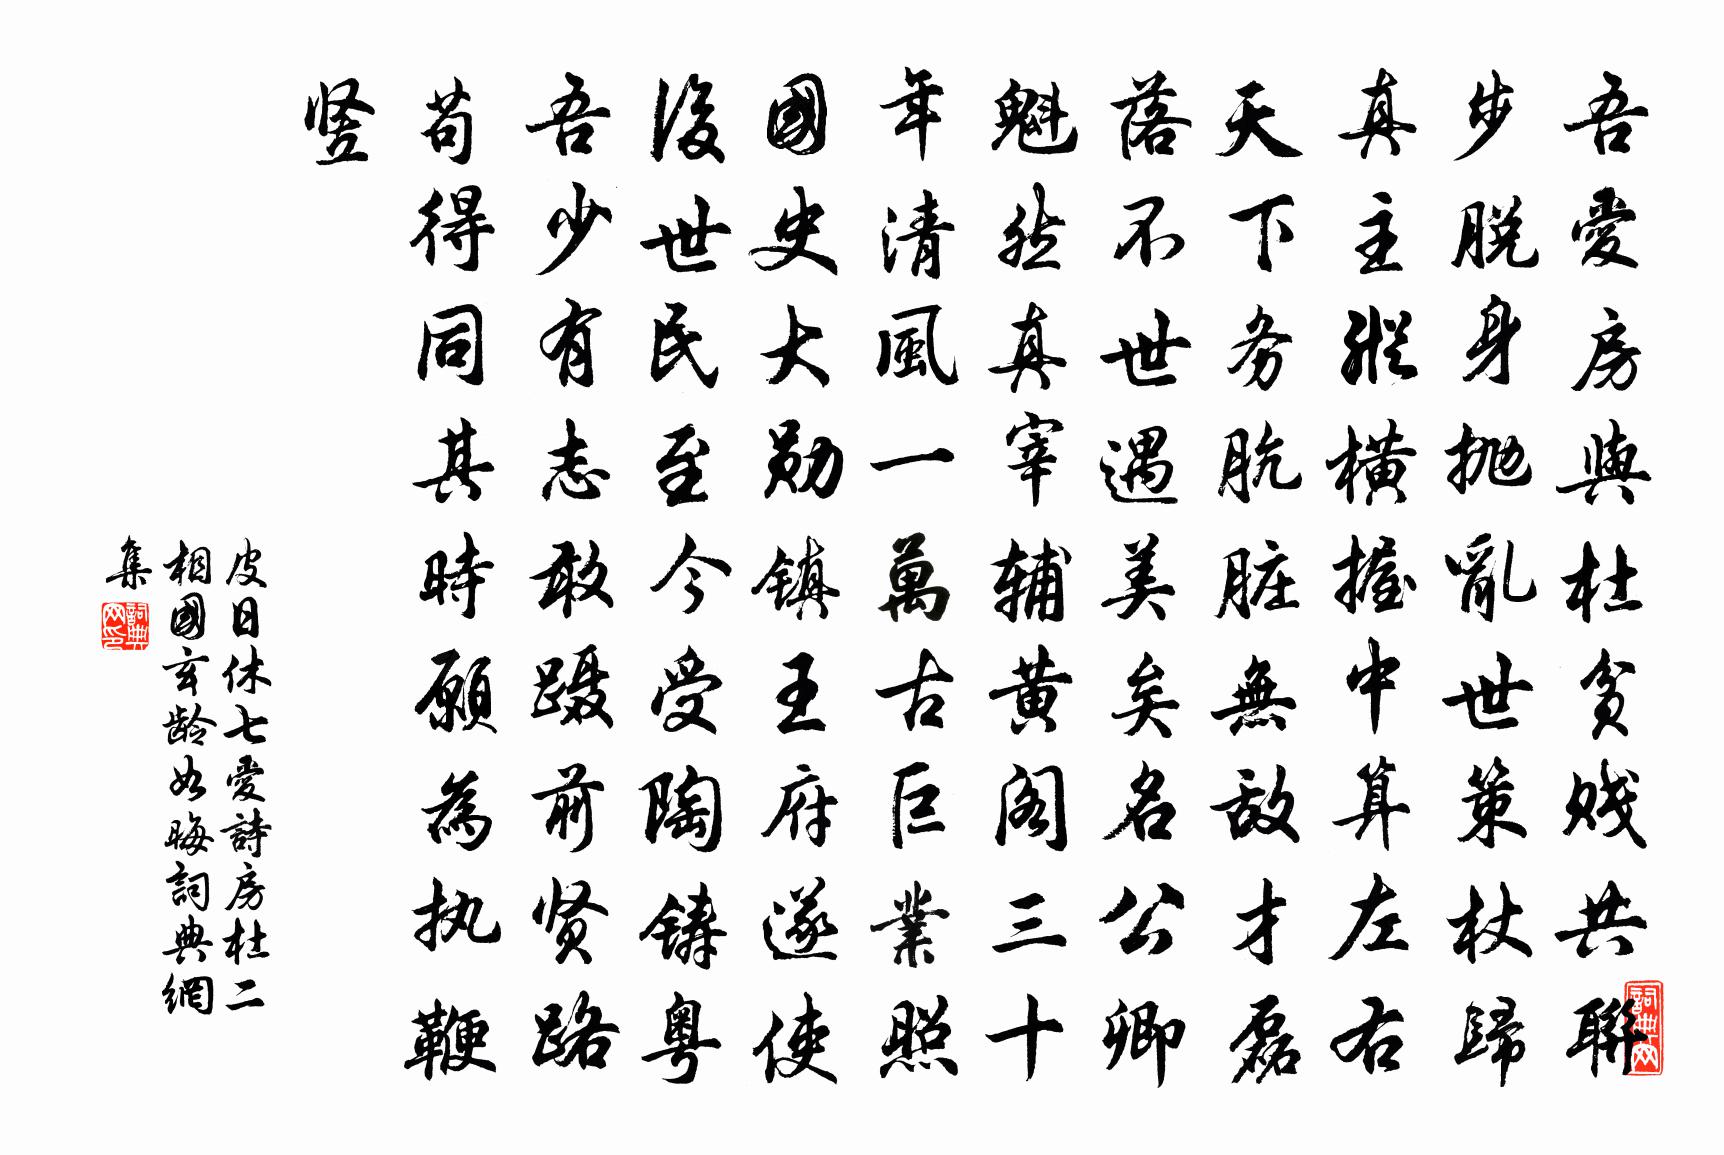 吾愛房與杜貧贱共聯
步脱身抛亂世策杖歸
真主縱橫握中算左右
天下务肮脏無敌才磊
落不世遇美矣名公卿
魁然真宰辅黄阁三十
年清風一萬古巨業照
國史大勋镇王府遂使
後世民至今受陶铸粤
吾少有志敢蹑前贤路
苟得同其時願為执鞭
竖
皮日休七愛詩房杜二
相國玄龄如晦詞典網
集
詞典网印
詞典网